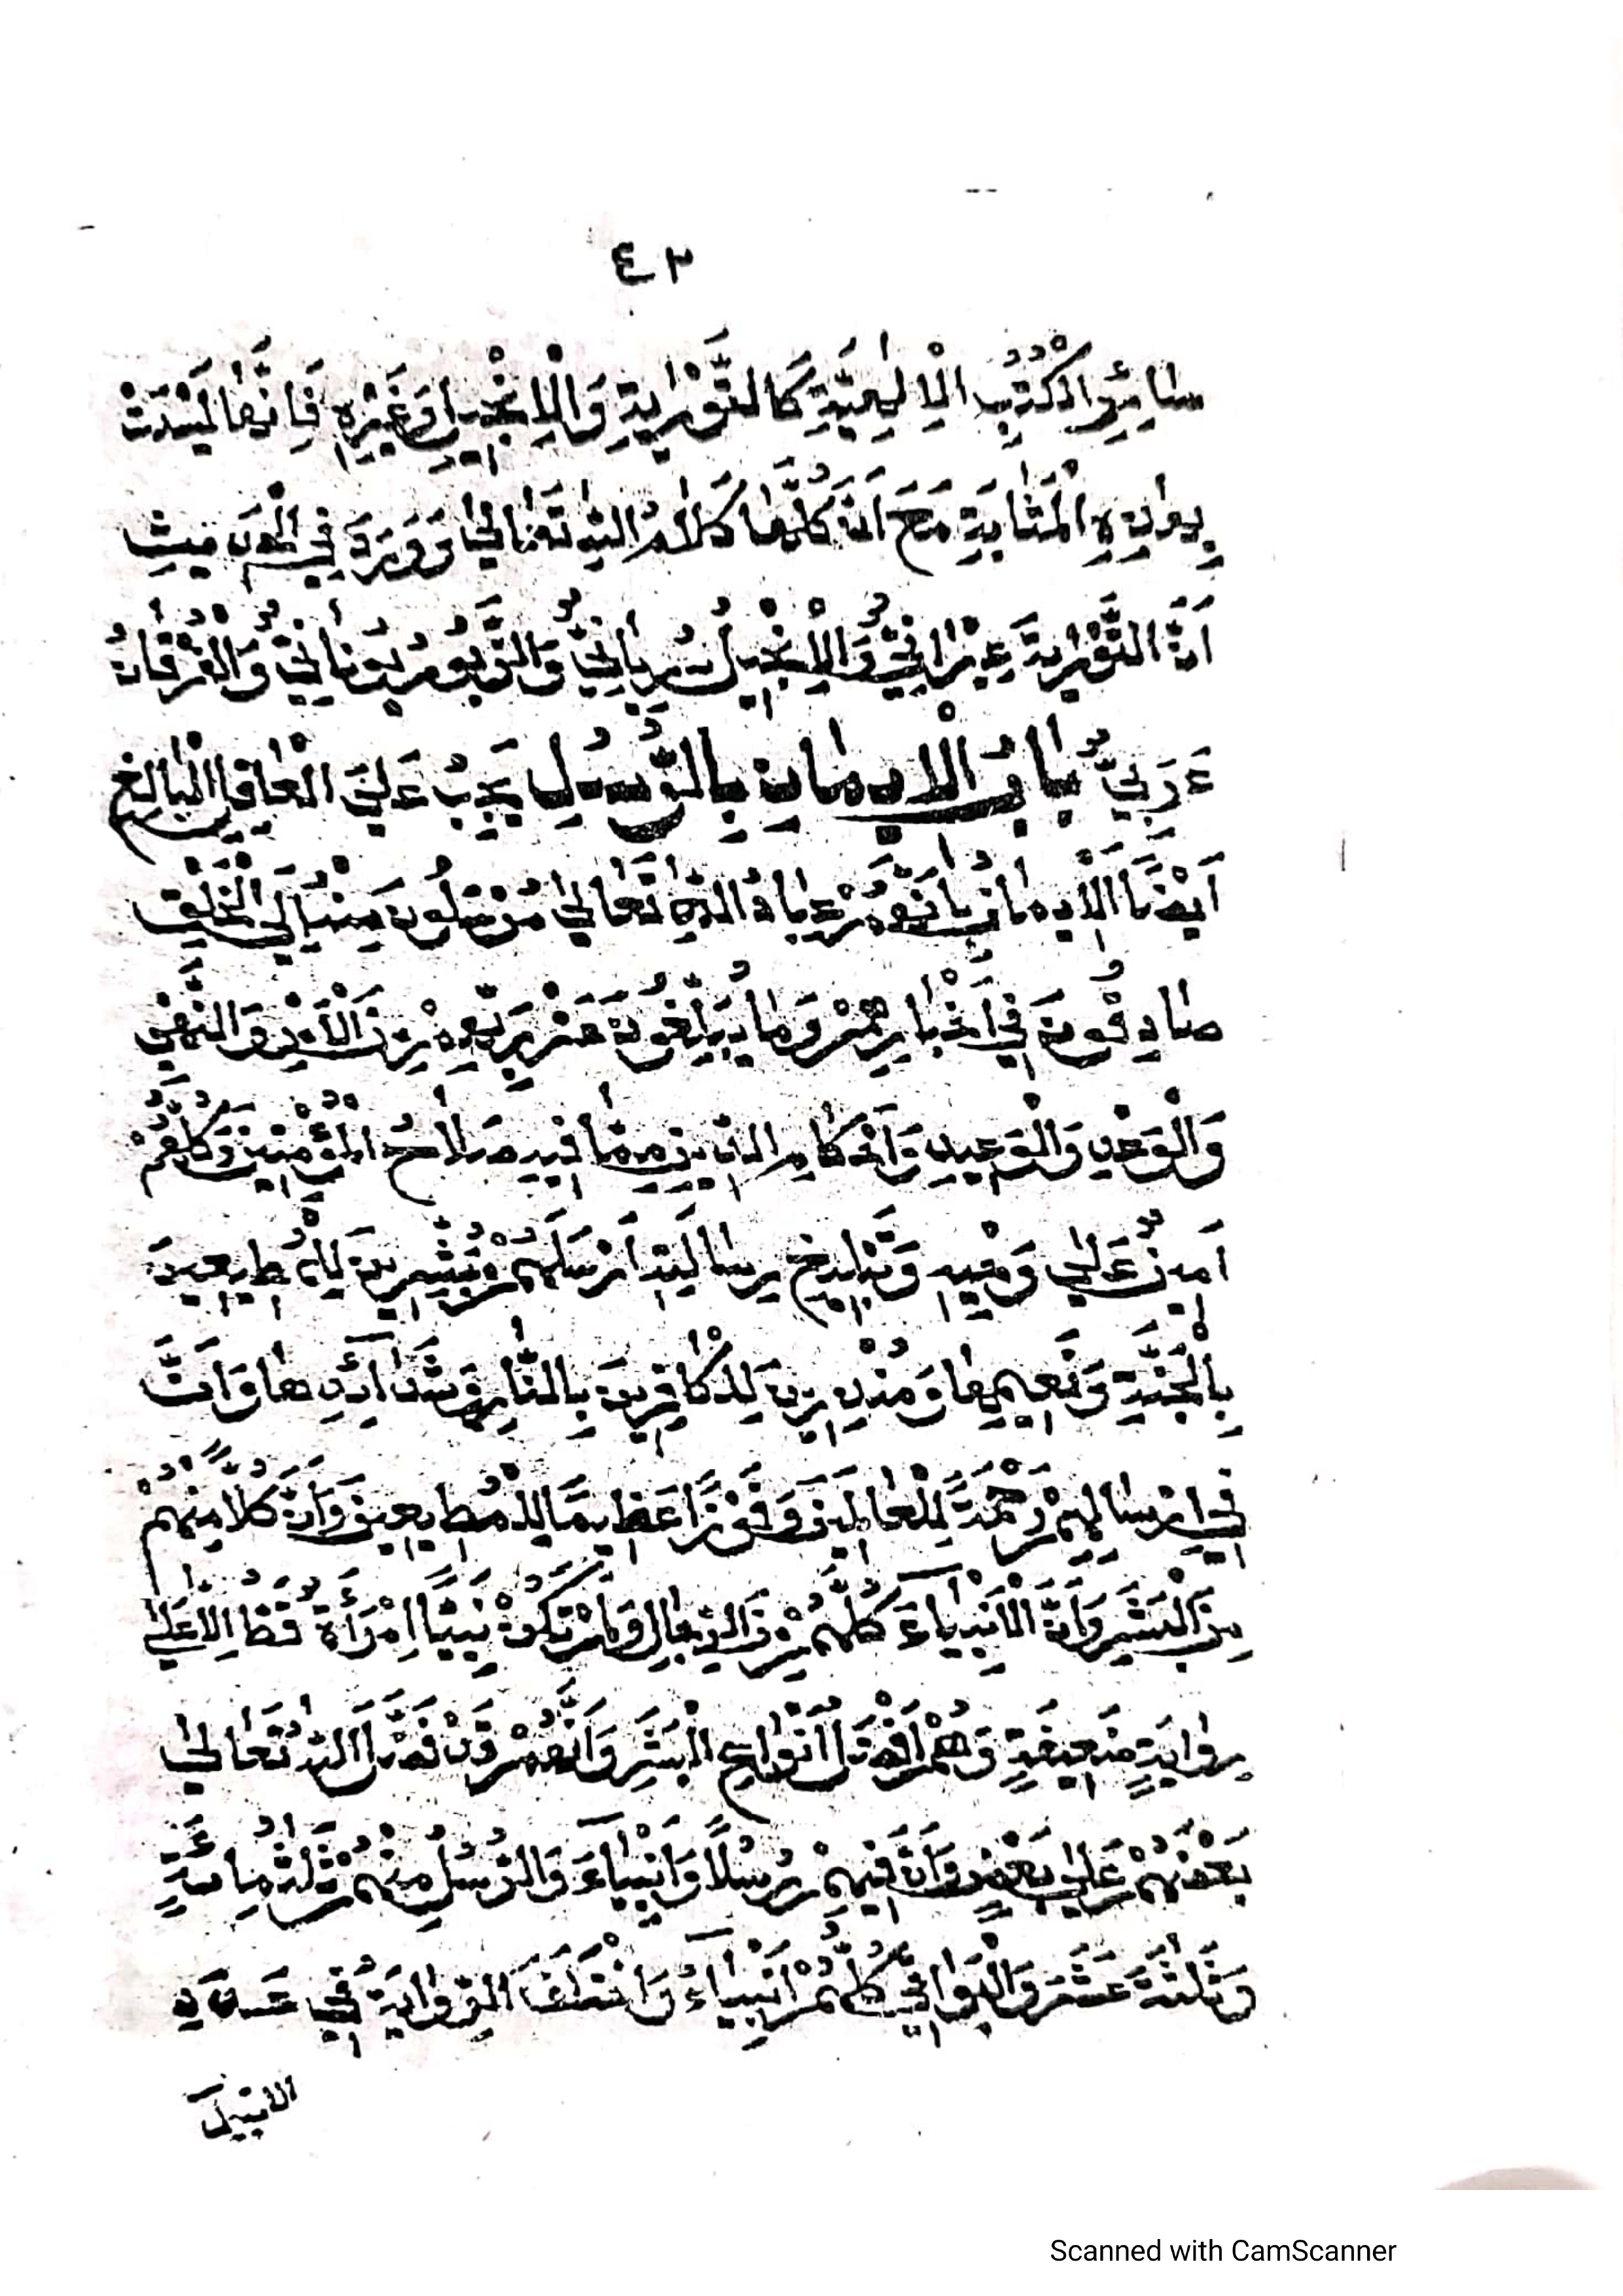 ٤٣
سَائِرِ الْكُتُبِ الْاِلٰهِيَّةِ كَالتَّوْرٰيةِ وَالْاِنْجِيلِ وَغَيْرِهِ فَاِنَّهَا لَيْسَتْ
بِهٰذِهِ الْمَثَابَةِ مَعَ اَنَّ كُلَّهَا كَلَامُ اللّٰهِ تَعَالٰى وَوَرَدَ فِي الْحَدِيثِ
اَنَّ التَّوْرٰيةَ عِبْرَانِيٌّ وَالْاِنْجِيلُ سُرْيَانِيٌّ وَالزَّبُورُ يُونَانِيٌّ وَالْفُرْقَانُ
عَرَبِيٌّ بَابُ الْاِيمَانِ بِالرُّسُلِ يَجِبُ عَلَى الْعَاقِلِ الْبَالِغِ
اَيْضًا الْاِيمَانُ بِاَنَّهُمْ عِبَادُ اللّٰهِ تَعَالٰى مُرْسَلُونَ مِنْهُ اِلَى الْخَلْقِ
صَادِقُونَ فِي اَخْبَارِهِمْ وَمَا يُبَلِّغُونَ عَنْ رَبِّهِمْ مِنَ الْاَمْرِ وَالنَّهْيِ
وَالْوَعْدِ وَالْوَعِيدِ وَاَحْكَامِ الدِّينِ مِمَّا فِيهِ صَلَاحُ الْمُؤْمِنِينَ وَكُلُّهُمْ
اَمِينٌ عَلٰى وَحْيِهِ وَتَبْلِيغِ رِسَالَتِهِ اَرْسَلَهُمْ مُبَشِّرِينَ لِلْمُطِيعِينَ
بِالْجَنَّةِ وَنَعِيمِهَا وَمُنْذِرِينَ لِلْكَافِرِينَ بِالنَّارِ وَشَدَآئِدِهَا وَاَنَّ
فِي اِرْسَالِهِمْ رَحْمَةً لِلْعَالَمِينَ وَفَوْزًا عَظِيمًا لِلْمُطِيعِينَ وَاَنَّ كُلًّا مِنْهُمْ
مِنَ الْبَشَرِ وَاَنَّ الْاَنْبِيَآءَ كُلَّهُمْ مِنَ الرِّجَالِ وَلَمْ تَكُنْ نَبِيًّا اِمْرَأَةٌ قَطُّ اِلَّا عَلٰى
رِوَايَةٍ ضَعِيفَةٍ وَهُمْ اَفْضَلُ اَنْوَاعِ الْبَشَرِ وَاَنَّهُمْ قَدْ فَضَّلَ اللّٰهُ تَعَالٰى
بَعْضَهُمْ عَلٰى بَعْضٍ وَاَنَّ فِيهِمْ رُسُلًا وَاَنْبِيَآءَ وَالرُّسُلُ مِنْهُمْ ثَلٰثُ مِائَةٍ
وَثَلٰثَةَ عَشَرَ وَالْبَوَاقِي كُلُّهُمْ اَنْبِيَآءُ وَاخْتَلَفَ الرِّوَايَةُ فِي عَدَدِ
Scanned with CamScanner